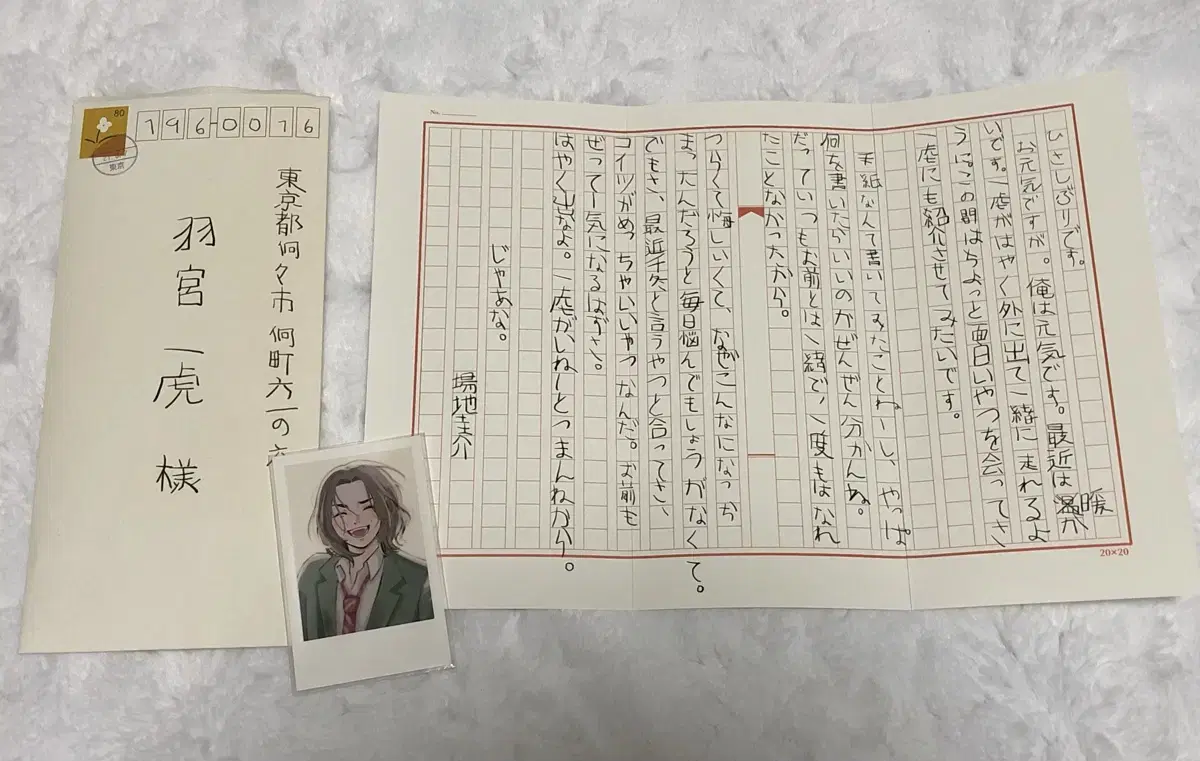 80
東京
196-0016
東京都何々市 何町六一の
羽宮一虎 様
No.
ひさしぶりです。
お元気ですが。俺は元気です。最近は暖か
いです。一虎がはやく外に出て一緒に走れるよ
うに。この間はちょっと面白いやつを会ってさ
一虎にも紹介させてみたいです。
手紙なんて書いてみたことねーし、やっぱ
何を書いたらいいのかぜんぜん分かんぬ。
だっていつもお前とは一緒で、一度もはなれ
たことなかったから。
つらくて悔しいくて、なぜこんなになっち
まったんだろうと毎日悩んでもしょうがなくて。
でもさ、最近千冬と言うやつと合ってさ、
コイツがめっちゃいいやつなんだ。お前も
ぜってー気になるはずさ。
はやく出なよ。一虎がいねーとつまんねから。
じゃあな。
場地圭介
20×20